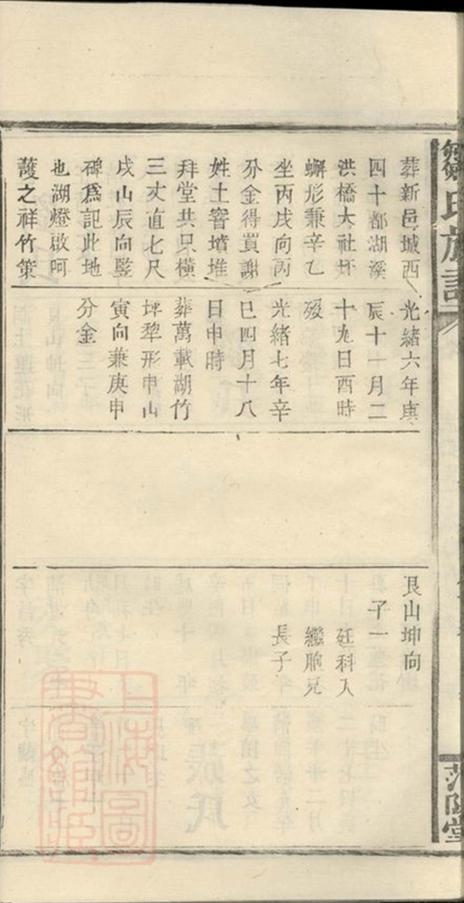 鄒氏族譜
范陽堂
葬新邑城西
四十都湖溪
洪橋大社圷
蠏形兼辛乙
坐丙戌向丙
分金得買謝
姓土窨墳堆
拜堂共只橫
三丈直七尺
戌山辰向竪
碑爲記此地
也湖燈啟呵
護之祥竹策
光緒六年庚
辰十一月二
十九日酉時
歿
光緒七年辛
巳四月十八
日申時
葬萬載湖竹
坪犂形申山
寅向兼庚申
分金
艮山坤向
子一
廷科入
繼胞兄
長子
上海圖書館藏